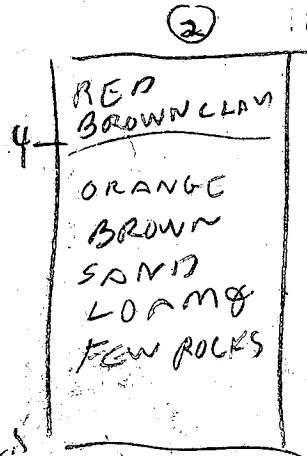 2
RED
BROWN CLAY
4
ORANGE
BROWN
SAND
LOAM &
FEW ROCKS